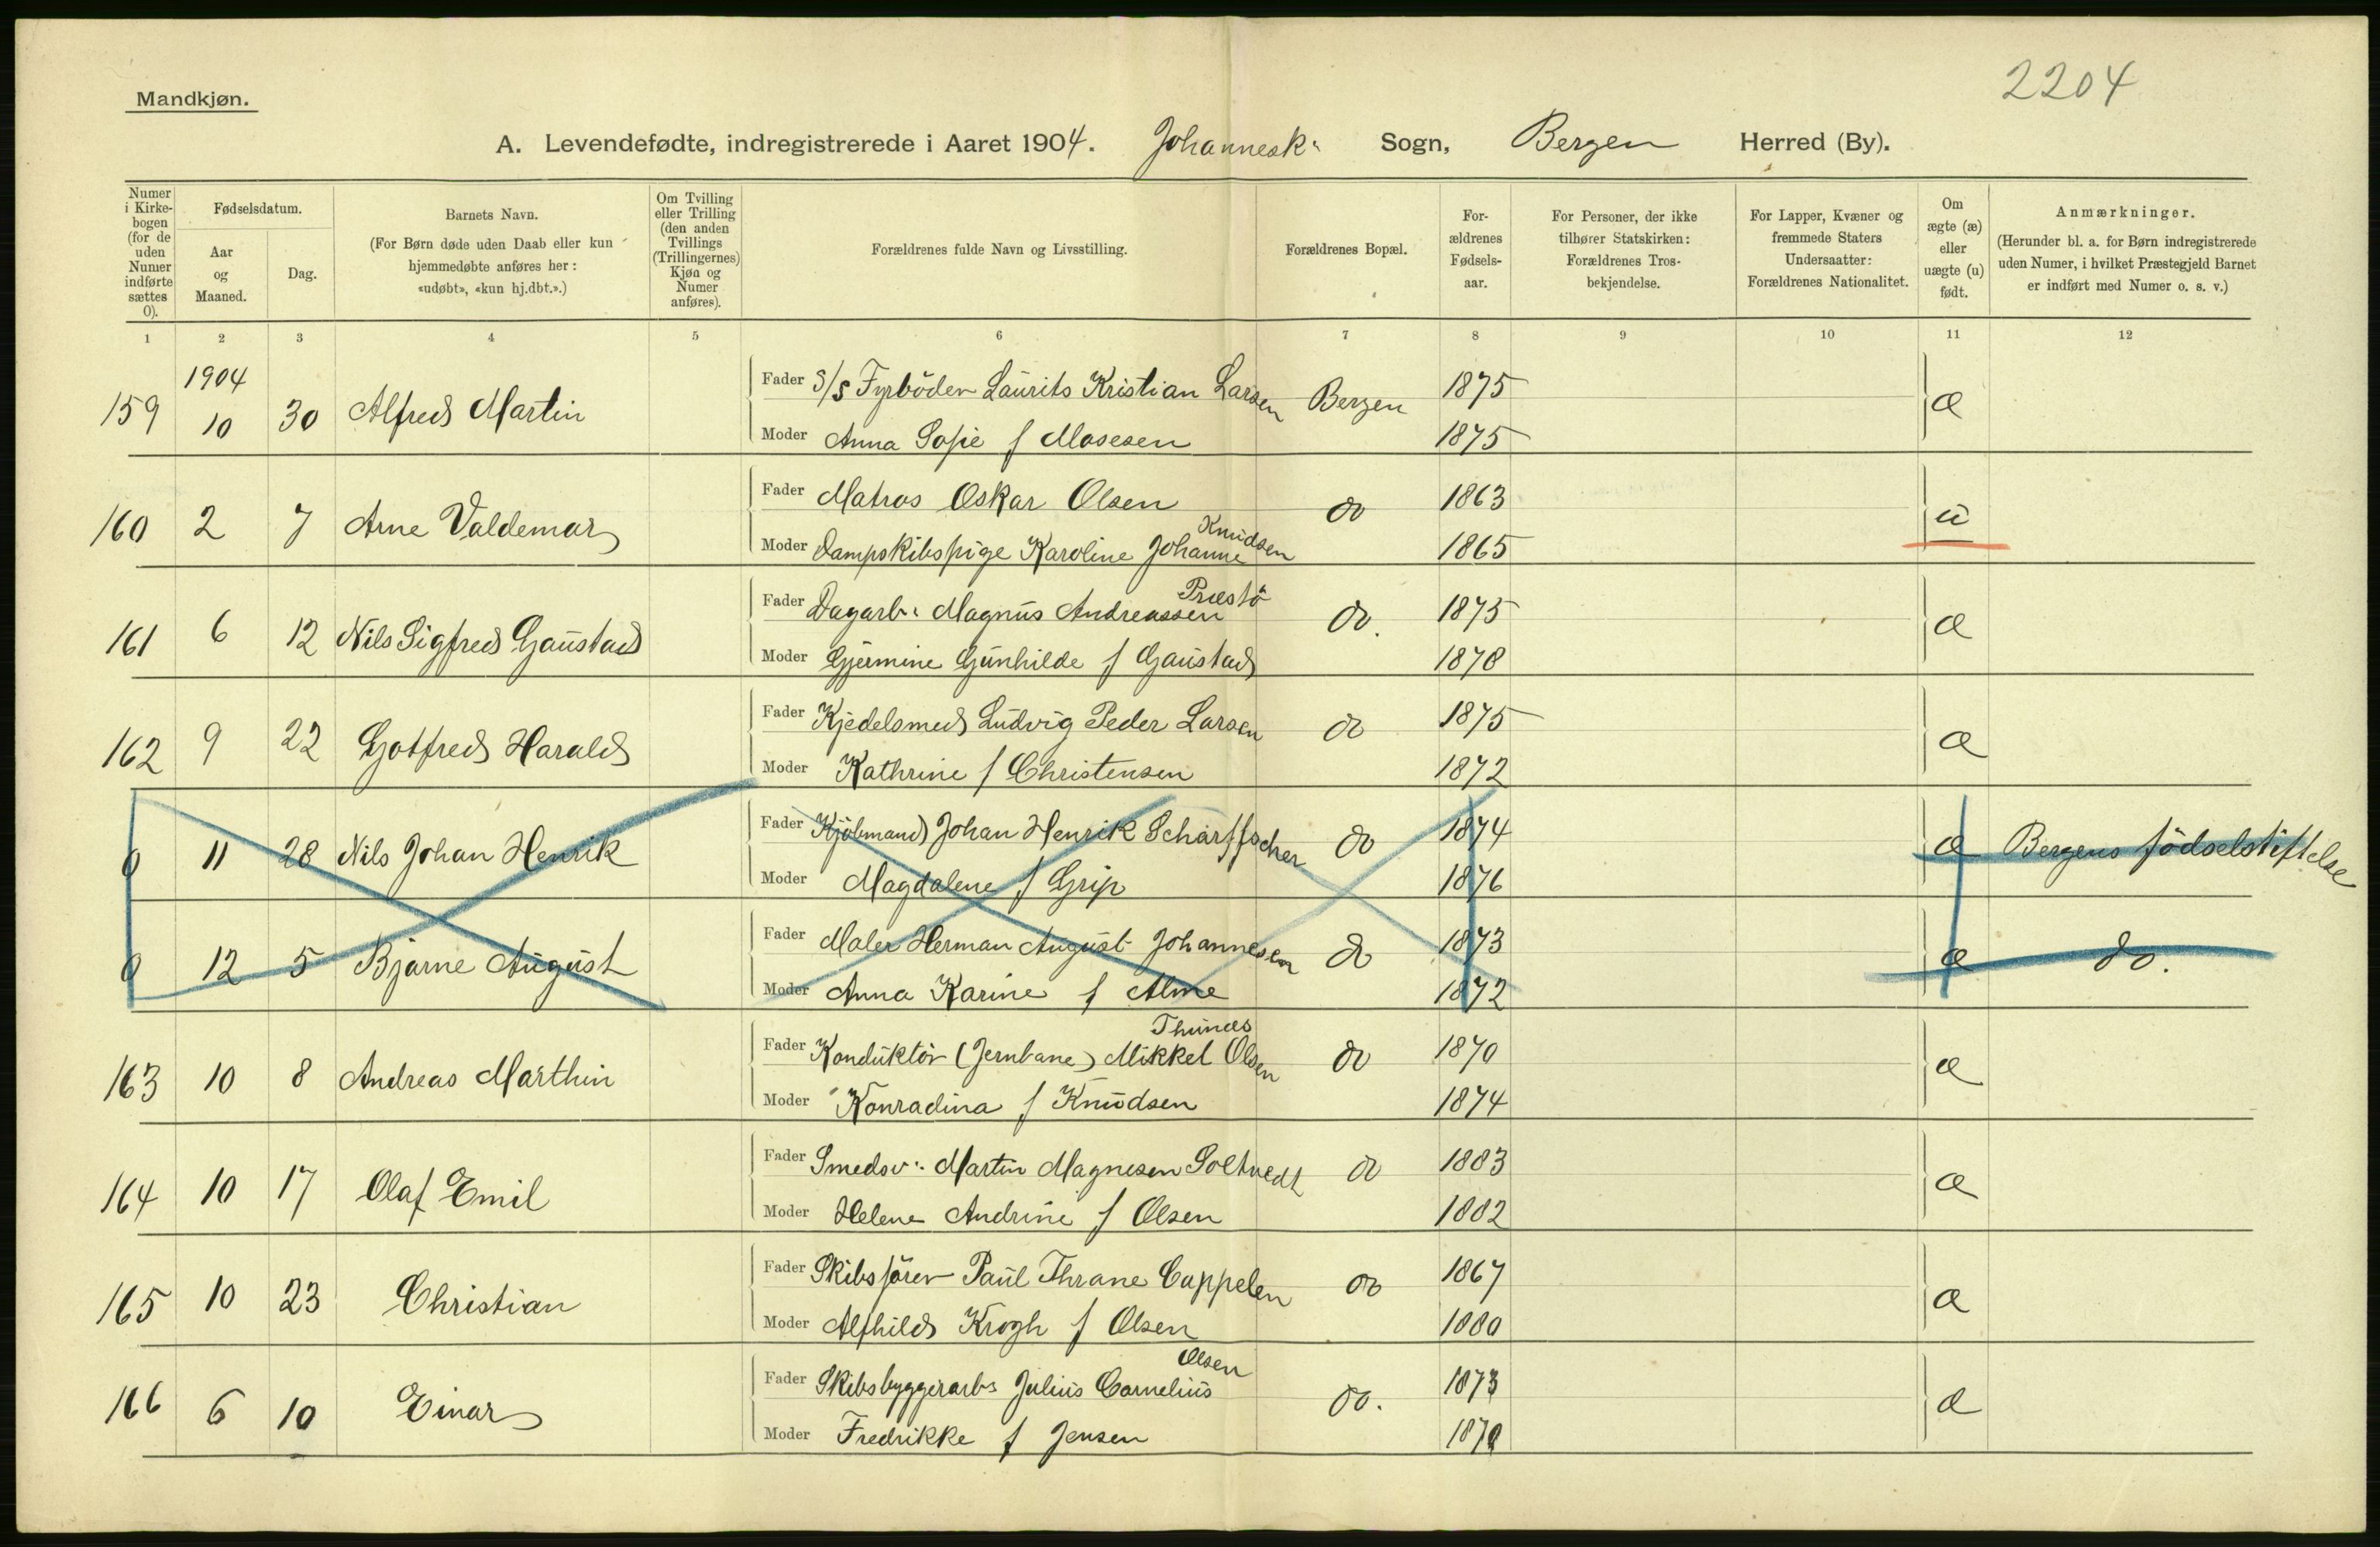 2204
Mandkjøn.
A. Levendefødte, indregistrerede i Aaret 1904. Johannesk: Sogn, Bergen Herred (By).
Numer i Kirkebogen (for de uden Numer indførte sættes 0).
Fødselsdatum.
Aar og Maaned.
Dag.
Barnets Navn.
(For Børn døde uden Daab eller kun hjemmedøbte anføres her: «udøbt», «kun hj.dbt.».)
Om Tvilling eller Trilling (den anden Tvillings (Trillingernes) Kjøn og Numer anføres).
Forældrenes fulde Navn og Livsstilling.
Forældrenes Bopæl.
Forældrenes Fødselsaar.
For Personer, der ikke tilhører Statskirken: Forældrenes Trosbekjendelse.
For Lapper, Kvæner og fremmede Staters Undersaatter: Forældrenes Nationalitet.
Om ægte (æ) eller uægte (u) født.
Anmærkninger.
(Herunder bl. a. for Børn indregistrerede uden Numer, i hvilket Præstegjeld Barnet er indført med Numer o. s. v.)
1 2 3 4 5 6 7 8 9 10 11 12
1904
159 10 30 Alfred Martin Fader S/S Fyrböder Laurits Kristian Larsen Bergen 1875 æ
Moder Anna Sofie f Mosesen 1875
160 2 7 Arne Valdemar Fader Matros Oskar Olsen do 1863 u
Moder Dampskibspige Karoline Johanne Knudsen 1865
161 6 12 Nils Sigfred Gaustad Fader Dagarb: Magnus Andreassen Præstö do. 1875 æ
Moder Gjermine Gunhilde f Gaustad 1878
162 9 22 Gotfred Harald Fader Kjedelsmed Ludvig Peder Larsen do 1875 æ
Moder Kathrine f Christensen 1872
0 11 28 Nils Johan Henrik Fader Kjöbmand Johan Henrik Scharffscher do 1874 æ Bergens födselstiftelse
Moder Magdalene f Grip 1876
0 12 5 Bjarne August Fader Maler Herman August Johannesen do 1873 æ do.
Moder Anna Karine f Alme 1872
163 10 8 Andreas Marthin Fader Konduktör (Jernbane) Mikkel Olsen Thunæs do 1870 æ
Moder Konradina f Knudsen 1874
164 10 17 Olaf Emil Fader Smedsv: Martin Magnesen Soltvedt do 1883 æ
Moder Helene Andrine f Olsen 1882
165 10 23 Christian Fader Skibsförer Paul Thrane Cappelen do 1867 æ
Moder Alfhild Krogh f Olsen 1880
166 6 10 Einar Fader Skibsbyggerarb: Julius Cornelius Olsen do. 1873 æ
Moder Fredrikke f Jensen